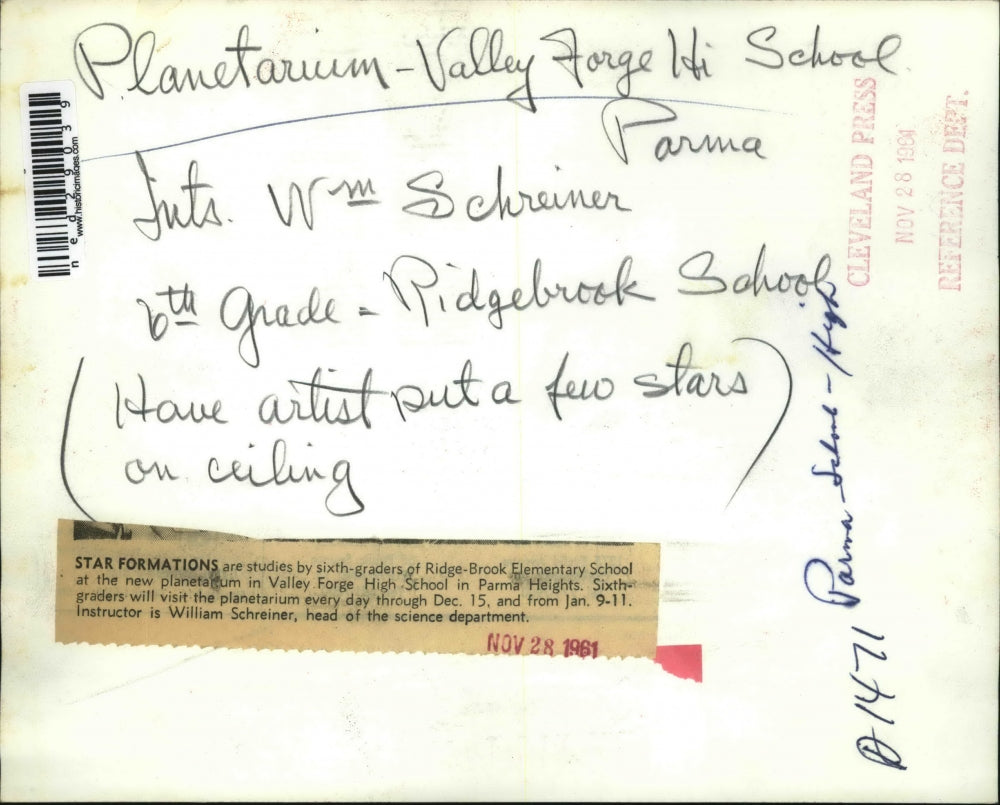 Planetarium - Valley Forge Hi School
Parma
Ints. Wm Schreiner
6th Grade - Ridgebrook School
(Have artist put a few stars
on ceiling)
STAR FORMATIONS are studies by sixth-graders of Ridge-Brook Elementary School
at the new planetarium in Valley Forge High School in Parma Heights. Sixth-
graders will visit the planetarium every day through Dec. 15, and from Jan. 9-11.
Instructor is William Schreiner, head of the science department.
NOV 28 1961
ned29039
www.historicimages.com
CLEVELAND PRESS
NOV 28 1961
REFERENCE DEPT.
Parma - School - High
D-1471